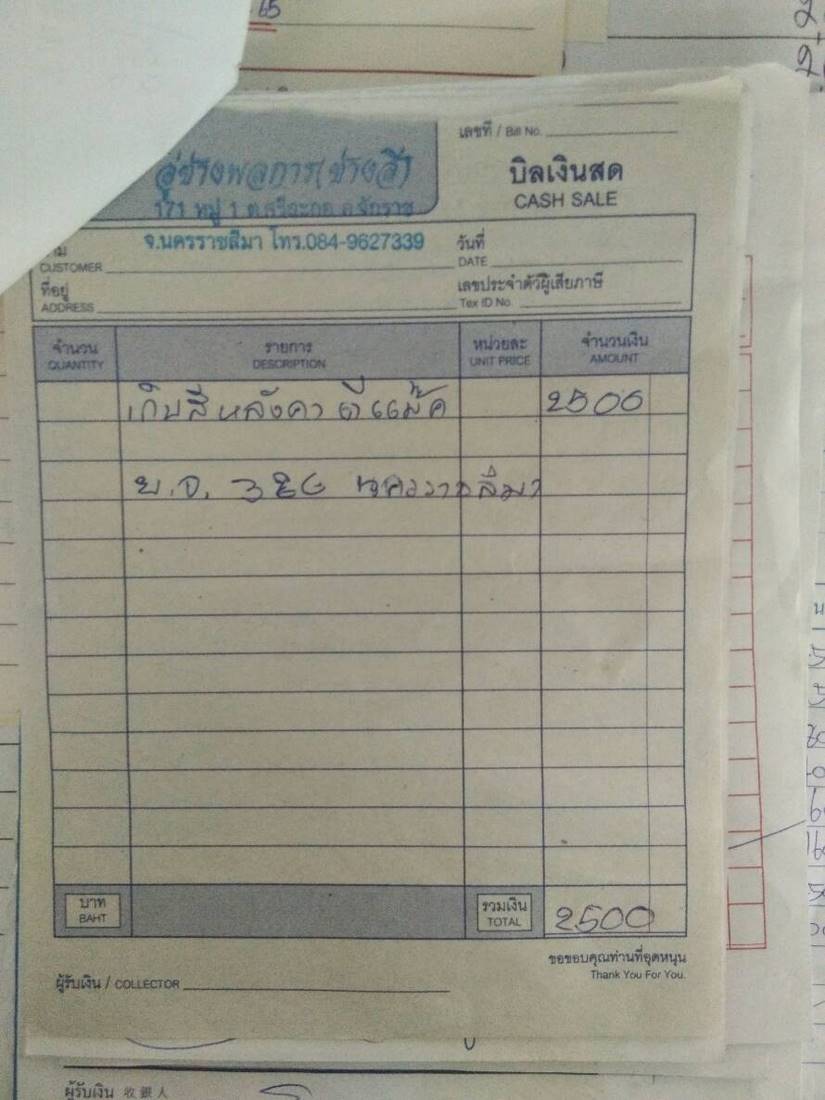 65
เลขที่ / Bill No.
อู่ช่างพลการ(ช่างลี)
บิลเงินสด
CASH SALE
171 หมู่ 1 ต.ศรีละกอ อ.จักราช
จ.นครราชสีมา โทร.084-9627339
วันที่
CUSTOMER
DATE
ที่อยู่
เลขประจำตัวผู้เสียภาษี
ADDRESS
Tex ID No.
จำนวน รายการ หน่วยละ จำนวนเงิน
QUANTITY DESCRIPTION UNIT PRICE AMOUNT
เก็บสีหลังคา 2500
บาท รวมเงิน
BAHT TOTAL 2500
ขอขอบคุณท่านที่อุดหนุน
Thank You For You.
ผู้รับเงิน / COLLECTOR
ผู้รับเงิน 收銀人